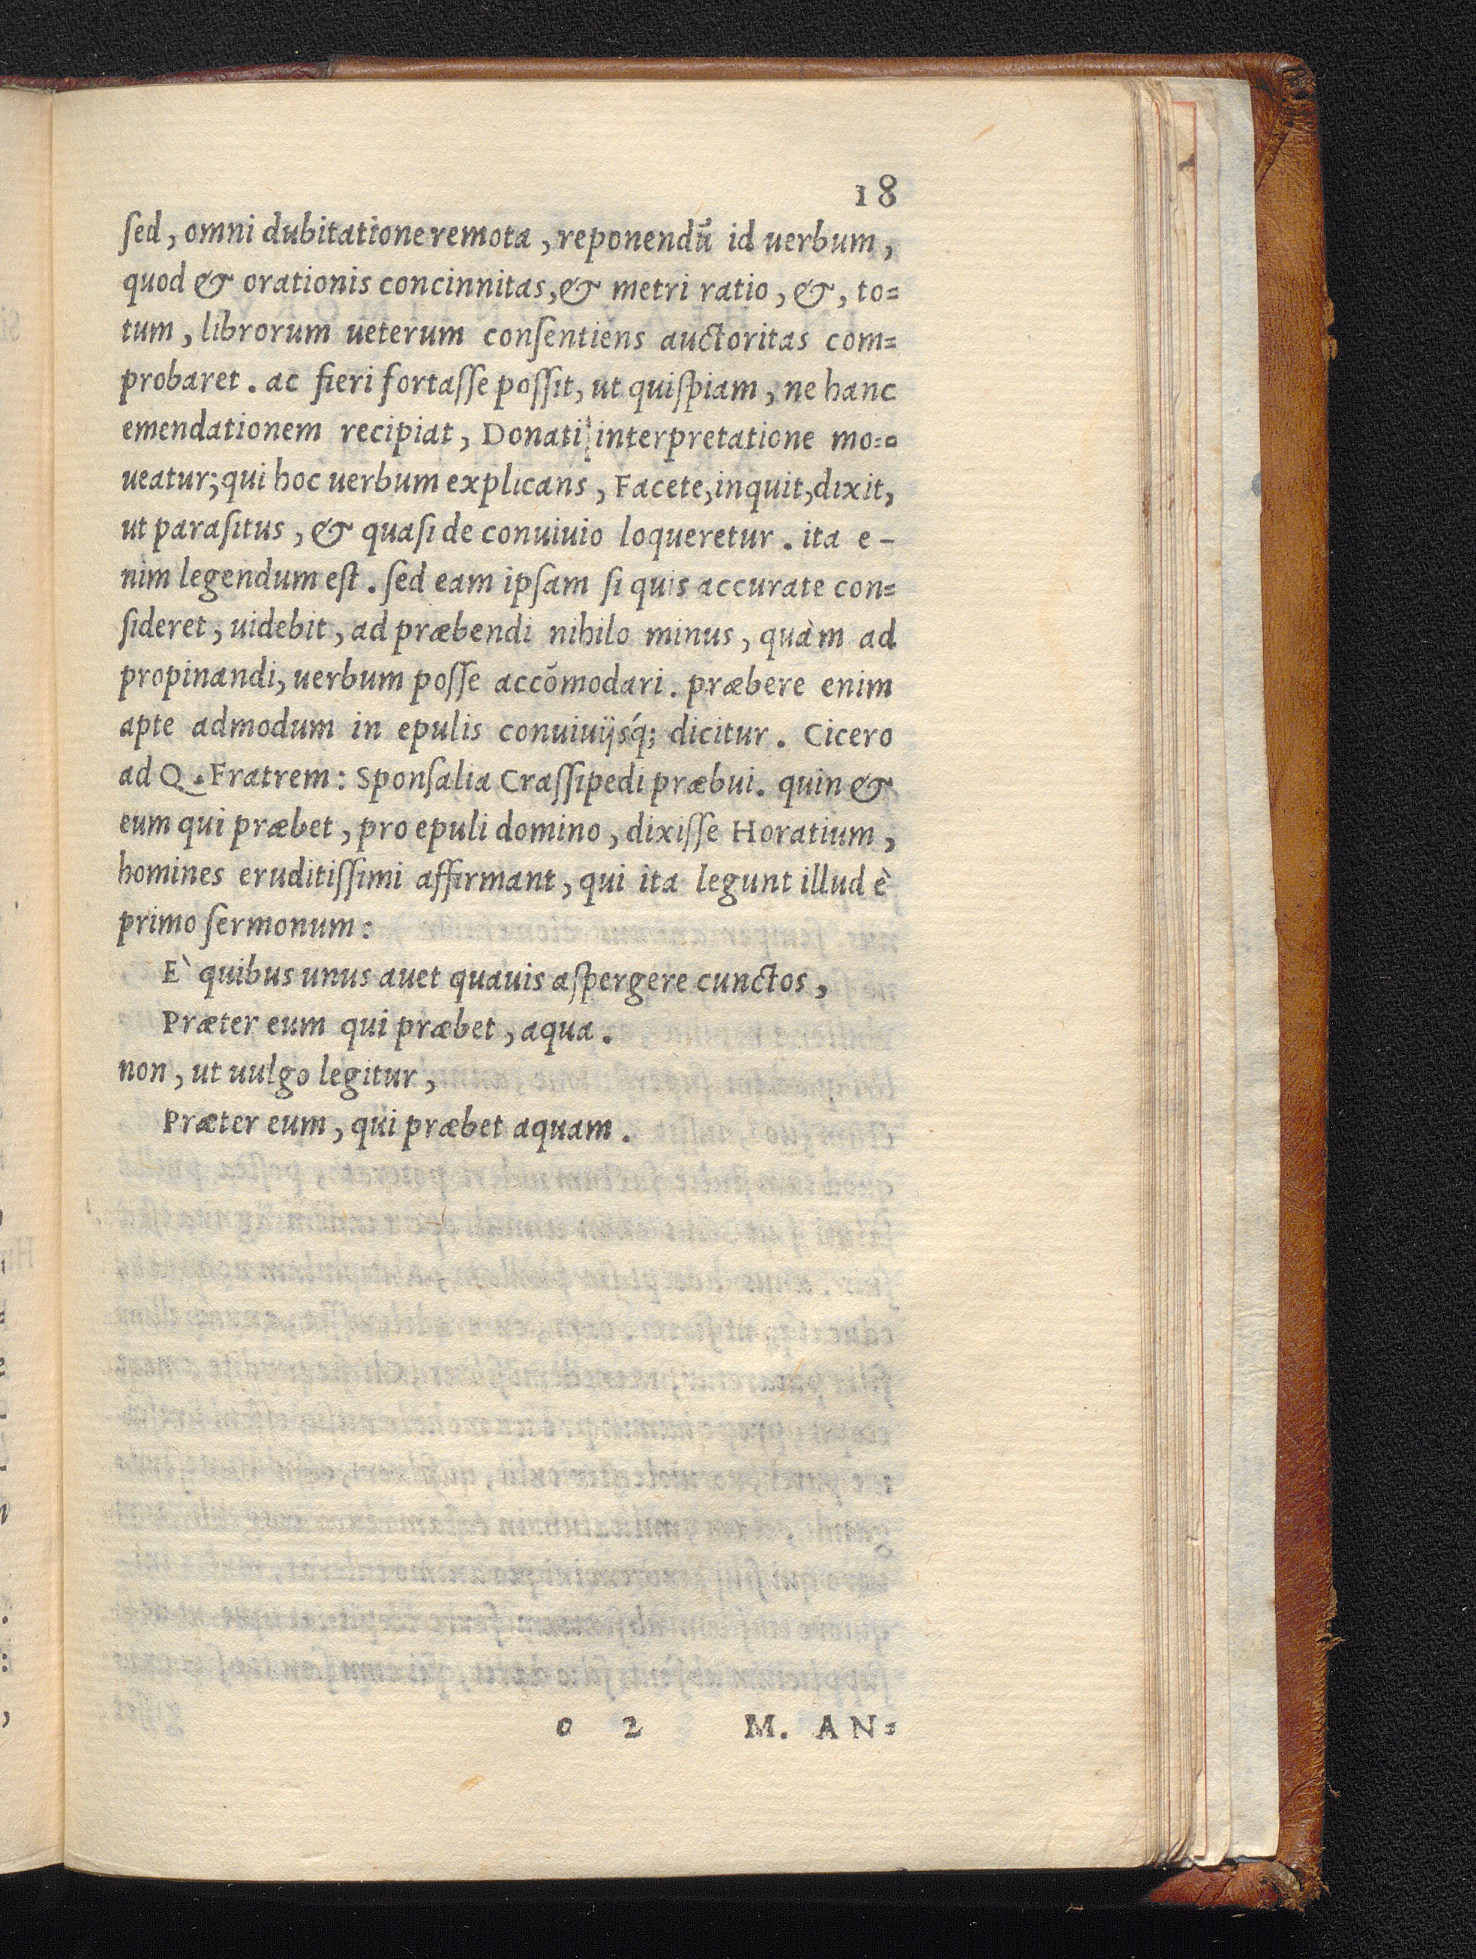 18
ſed, omni dubitatione remota, reponendũ id uerbum,
quod & orationis concinnitas, & metri ratio, &, to=
tum, librorum ueterum conſentiens auctoritas com=
probaret. ac fieri fortaſſe poſſit, ut quiſpiam, ne hanc
emendationem recipiat, Donati interpretatione mo=
ueatur; qui hoc uerbum explicans, Facete, inquit, dixit,
ut paraſitus, & quaſi de conuiuio loqueretur. ita e-
nim legendum eſt. ſed eam ipſam ſi quis accurate con=
ſideret, uidebit, ad præbendi nihilo minus, quàm ad
propinandi, uerbum poſſe accõmodari. præbere enim
apte admodum in epulis conuiuijsq́; dicitur. Cicero
ad Q. Fratrem: Sponſalia Craſſipedi præbui. quin &
eum qui præbet, pro epuli domino, dixiſſe Horatium,
homines eruditiſſimi affirmant, qui ita legunt illud è
primo ſermonum:
E` quibus unus auet quauis aſpergere cunctos,
Præter eum qui præbet, aqua.
non, ut uulgo legitur,
Præter eum, qui præbet aquam.
o 2 M. AN=